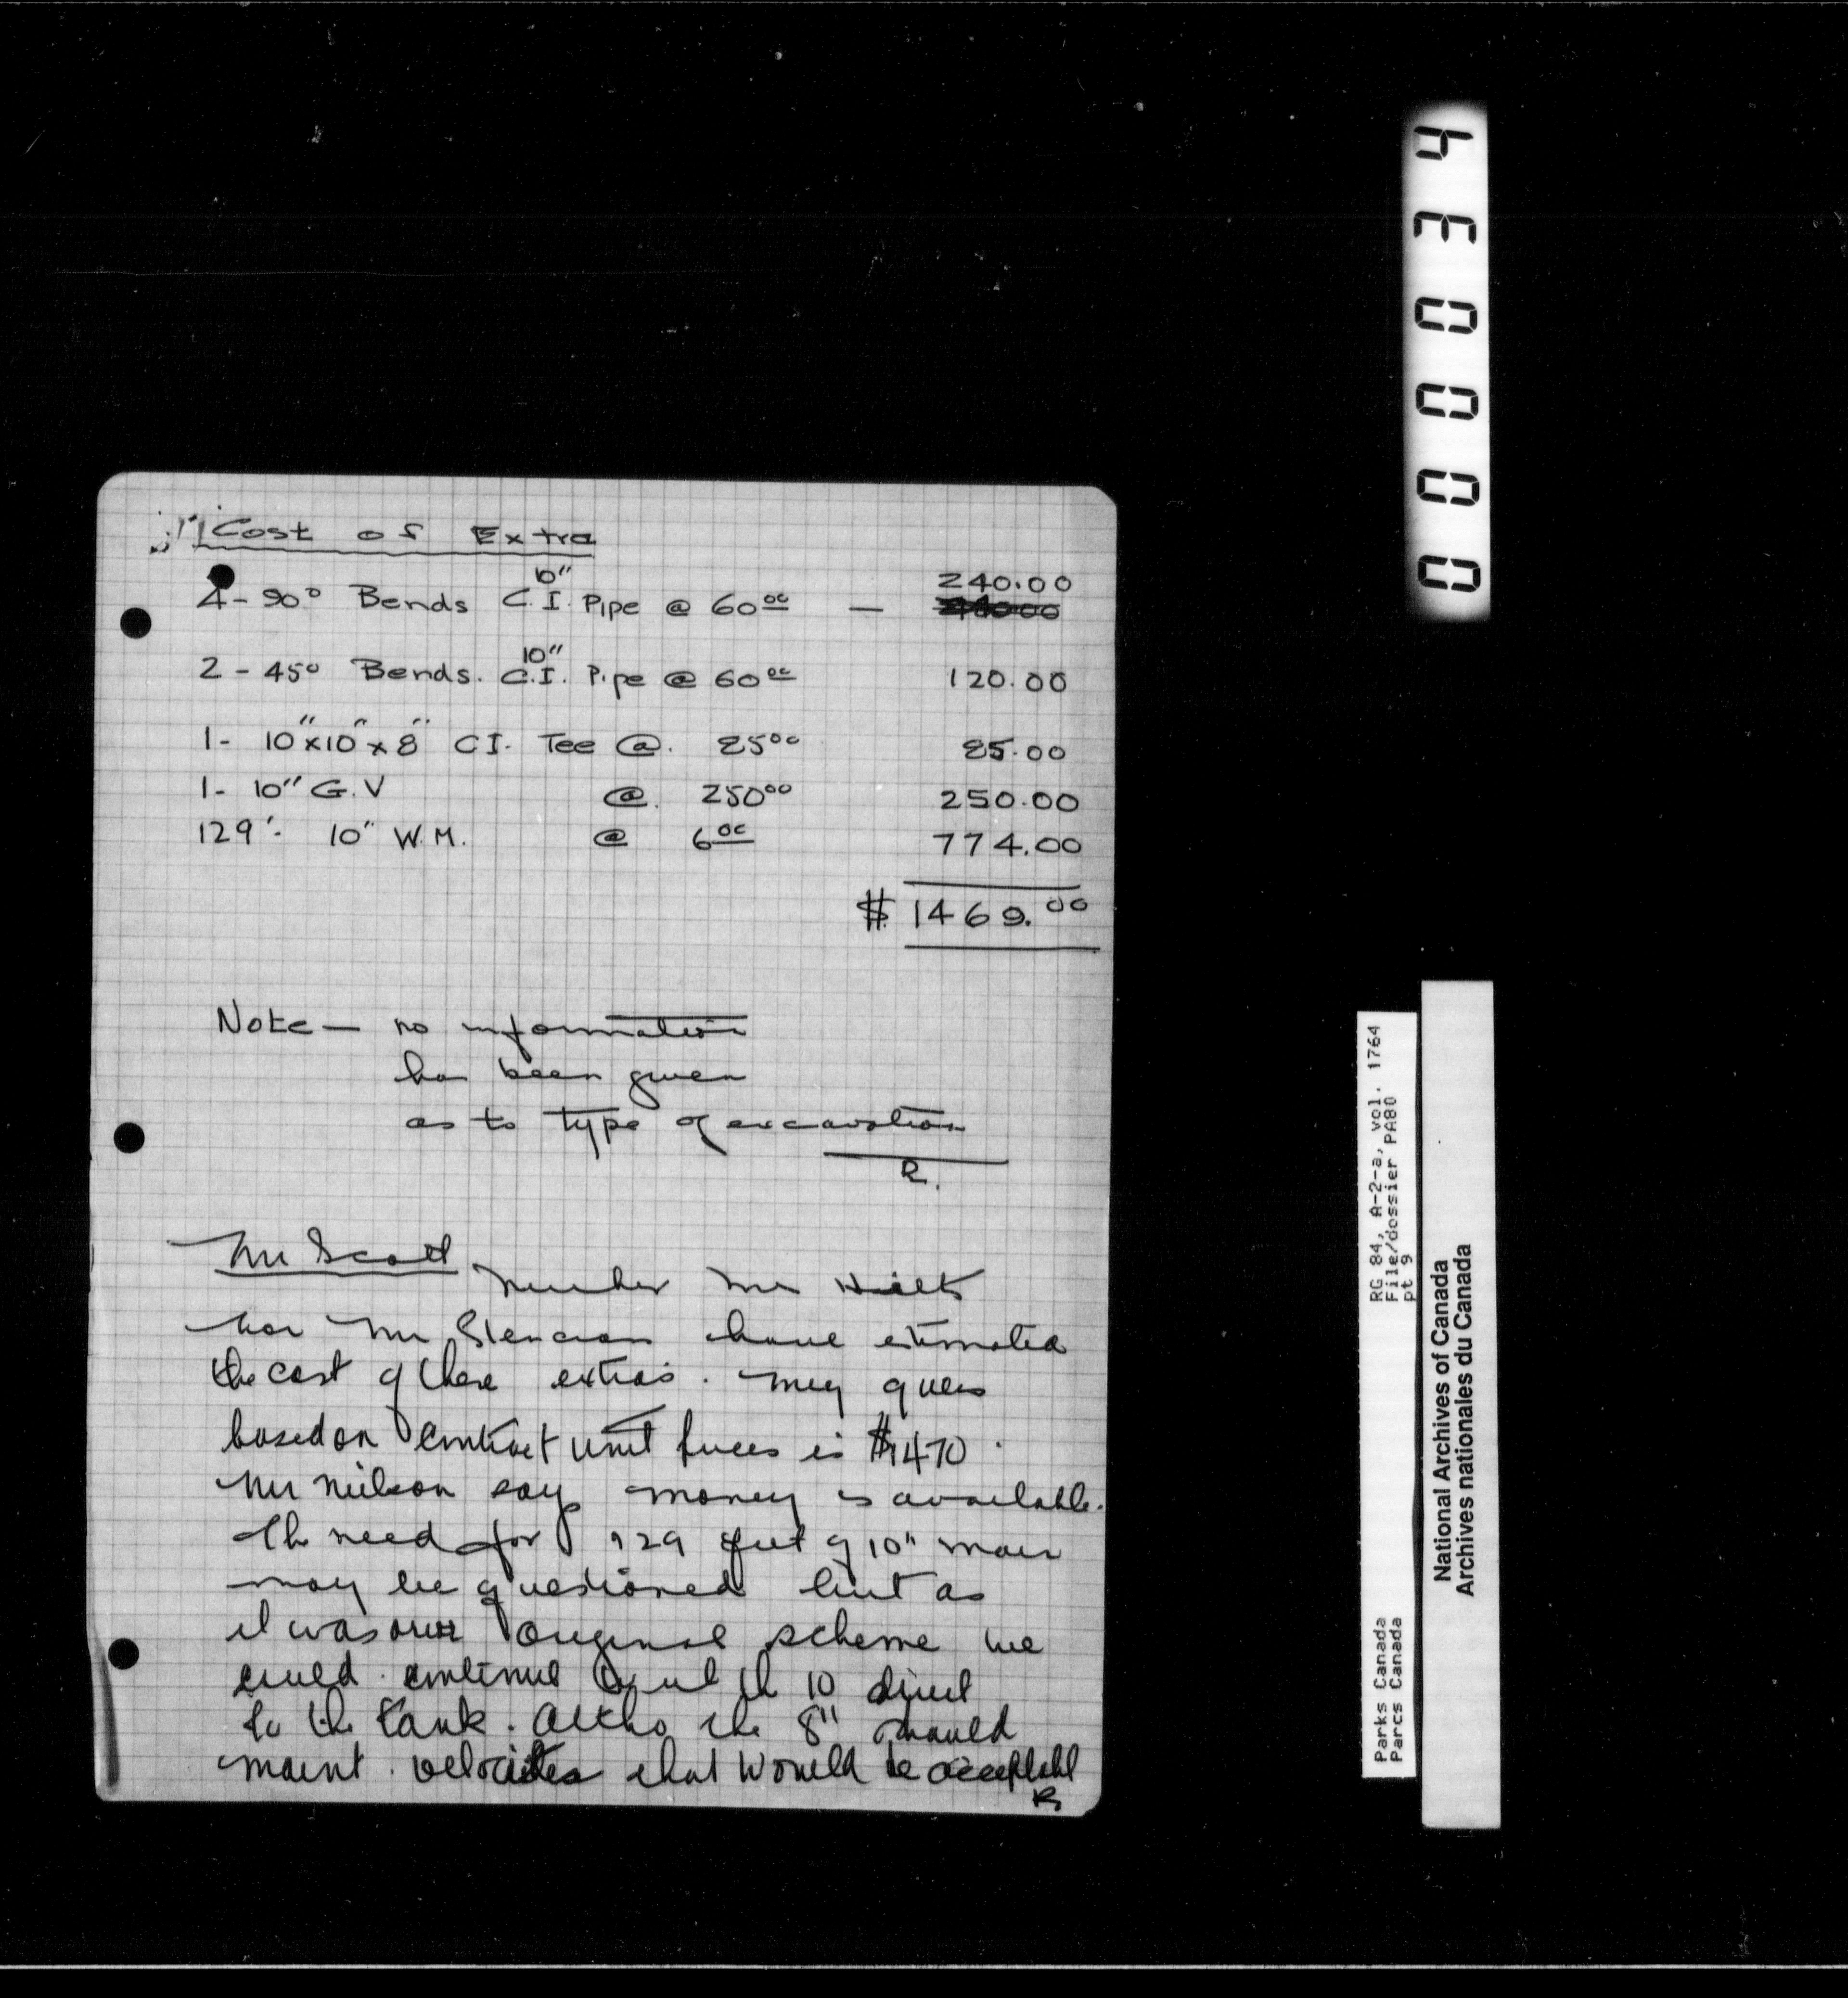 Cost of Extra
10"
4 - 90° Bends C.I. Pipe @ 60 00 — 240.00
10"
2 - 45° Bends. C.I. Pipe @ 60 00 120.00
1- 10"x10"x8" CI. Tee @. 85 00 85.00
1- 10" G.V @. 250 00 250.00
129'- 10" W.M. @ 6 00 774.00
$ 1469.00
Note — no information
has been given
as to type of excavation
R.
Mr Scott
Neither Mr Hilts
nor Mr have estimated
the cost of these extras. My guess
based on contract unit prices is $1470.
Mr Neilson says money is available.
The need for 129 feet of 10" main
may be questioned but as
it was our original scheme we
could continue the 10 direct
to the tank. Altho the 8" should
maint. velocities that would be acceptabl
R
000034
RG 84, A-2-a, vol. 1764
File/dossier PA80
pt 9
Parks Canada
Parcs Canada
National Archives of Canada
Archives nationales du Canada